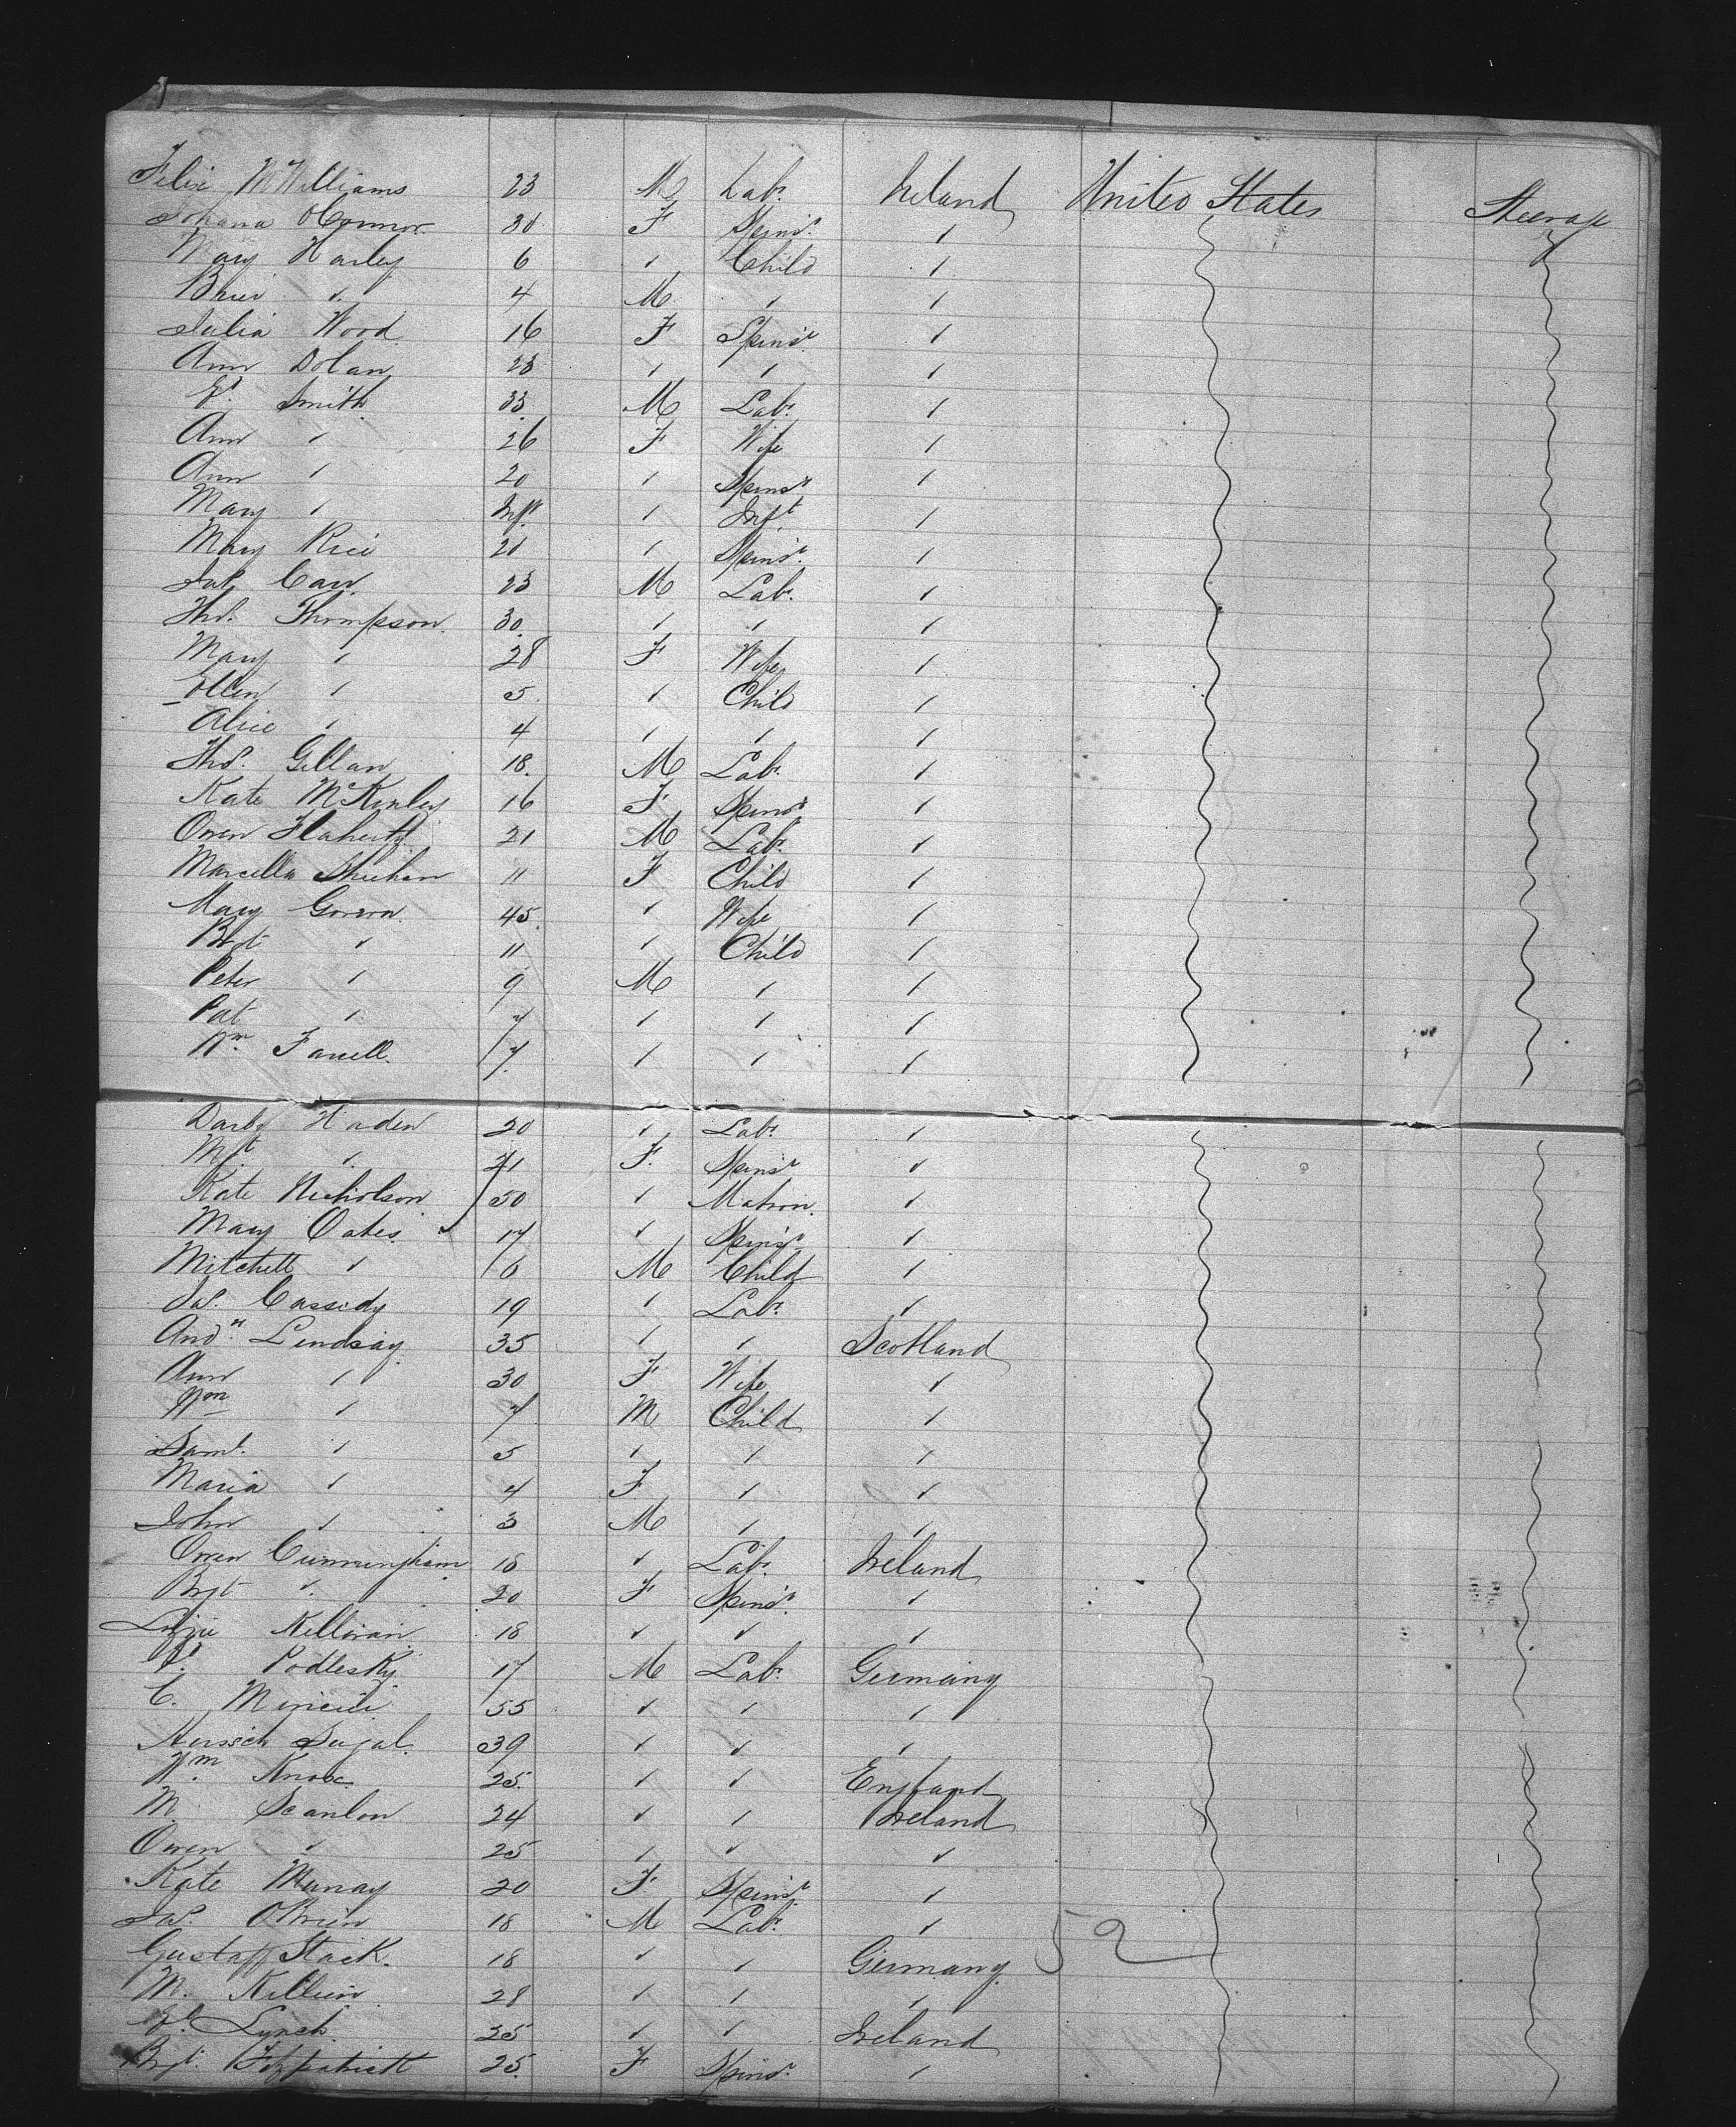 Felix McWilliams 23 M Labr. Ireland United States Steerage
Johana OConnor 30 F Spinsr. "
Mary Harley 6 " Child "
" 4 M " "
Julia Wood 16 F Spinsr. "
Ann Dolan 23 " " "
Ed. Smith 33 M Labr. "
Ann " 26 F Wife "
Ann " 20 " Spinsr "
Mary " Inft " Inft "
Mary Rice 20 " Spinsr. "
Jas. Carr 23 M Labr. "
Thos. Thompson 30 " " "
Mary " 28 F Wife "
Ellen " 5 " Child "
Alice " 4 " " "
Thos. Gillan 18 M Labr. "
Kate McKinley 16 F Spinsr "
Owen Flaherty 21 M Labr. "
Marcella Sheehan 11 F Child "
Mary 45 " Wife "
Bgt " 11 " Child "
Peter " 9 M " "
Pat " 7 " " "
Wm. Farrell 7 " " "
Darby Haden 20 " Labr. "
Mgt " 21 F. Spinsr "
Kate Nicholson 50 " Matron "
Mary Oates 17 " Spinsr "
Mitchell " 6 M Child "
Jas. Cassidy 19 " Labr. "
Andw. Lindsay 35 " " Scotland
Ann " 30 F Wife "
Wm " 7 M Child "
Saml. " 5 " " "
Maria " 4 F " "
John " 3 M " "
Owen Cunningham 18 " Labr. Ireland
Bgt " 20 F Spinsr. "
Lizzie Killoran 18 " " "
Podlesky 17 M Labr. Germany
C. 55 " " "
Hersich Segal 39 " " "
Wm. Knox 25 " " England
M Scanlon 24 " " Ireland
Owen " 25 " " "
Kate Murray 20 F Spinsr "
Jas. OBrien 18 M Labr. "
Gustaff Stack 18 " " Germany 52
M. Killien 28 " " "
Ed. Lynch 25 " " Ireland
Bgt. Fitzpatrick 25 F Spinsr. "